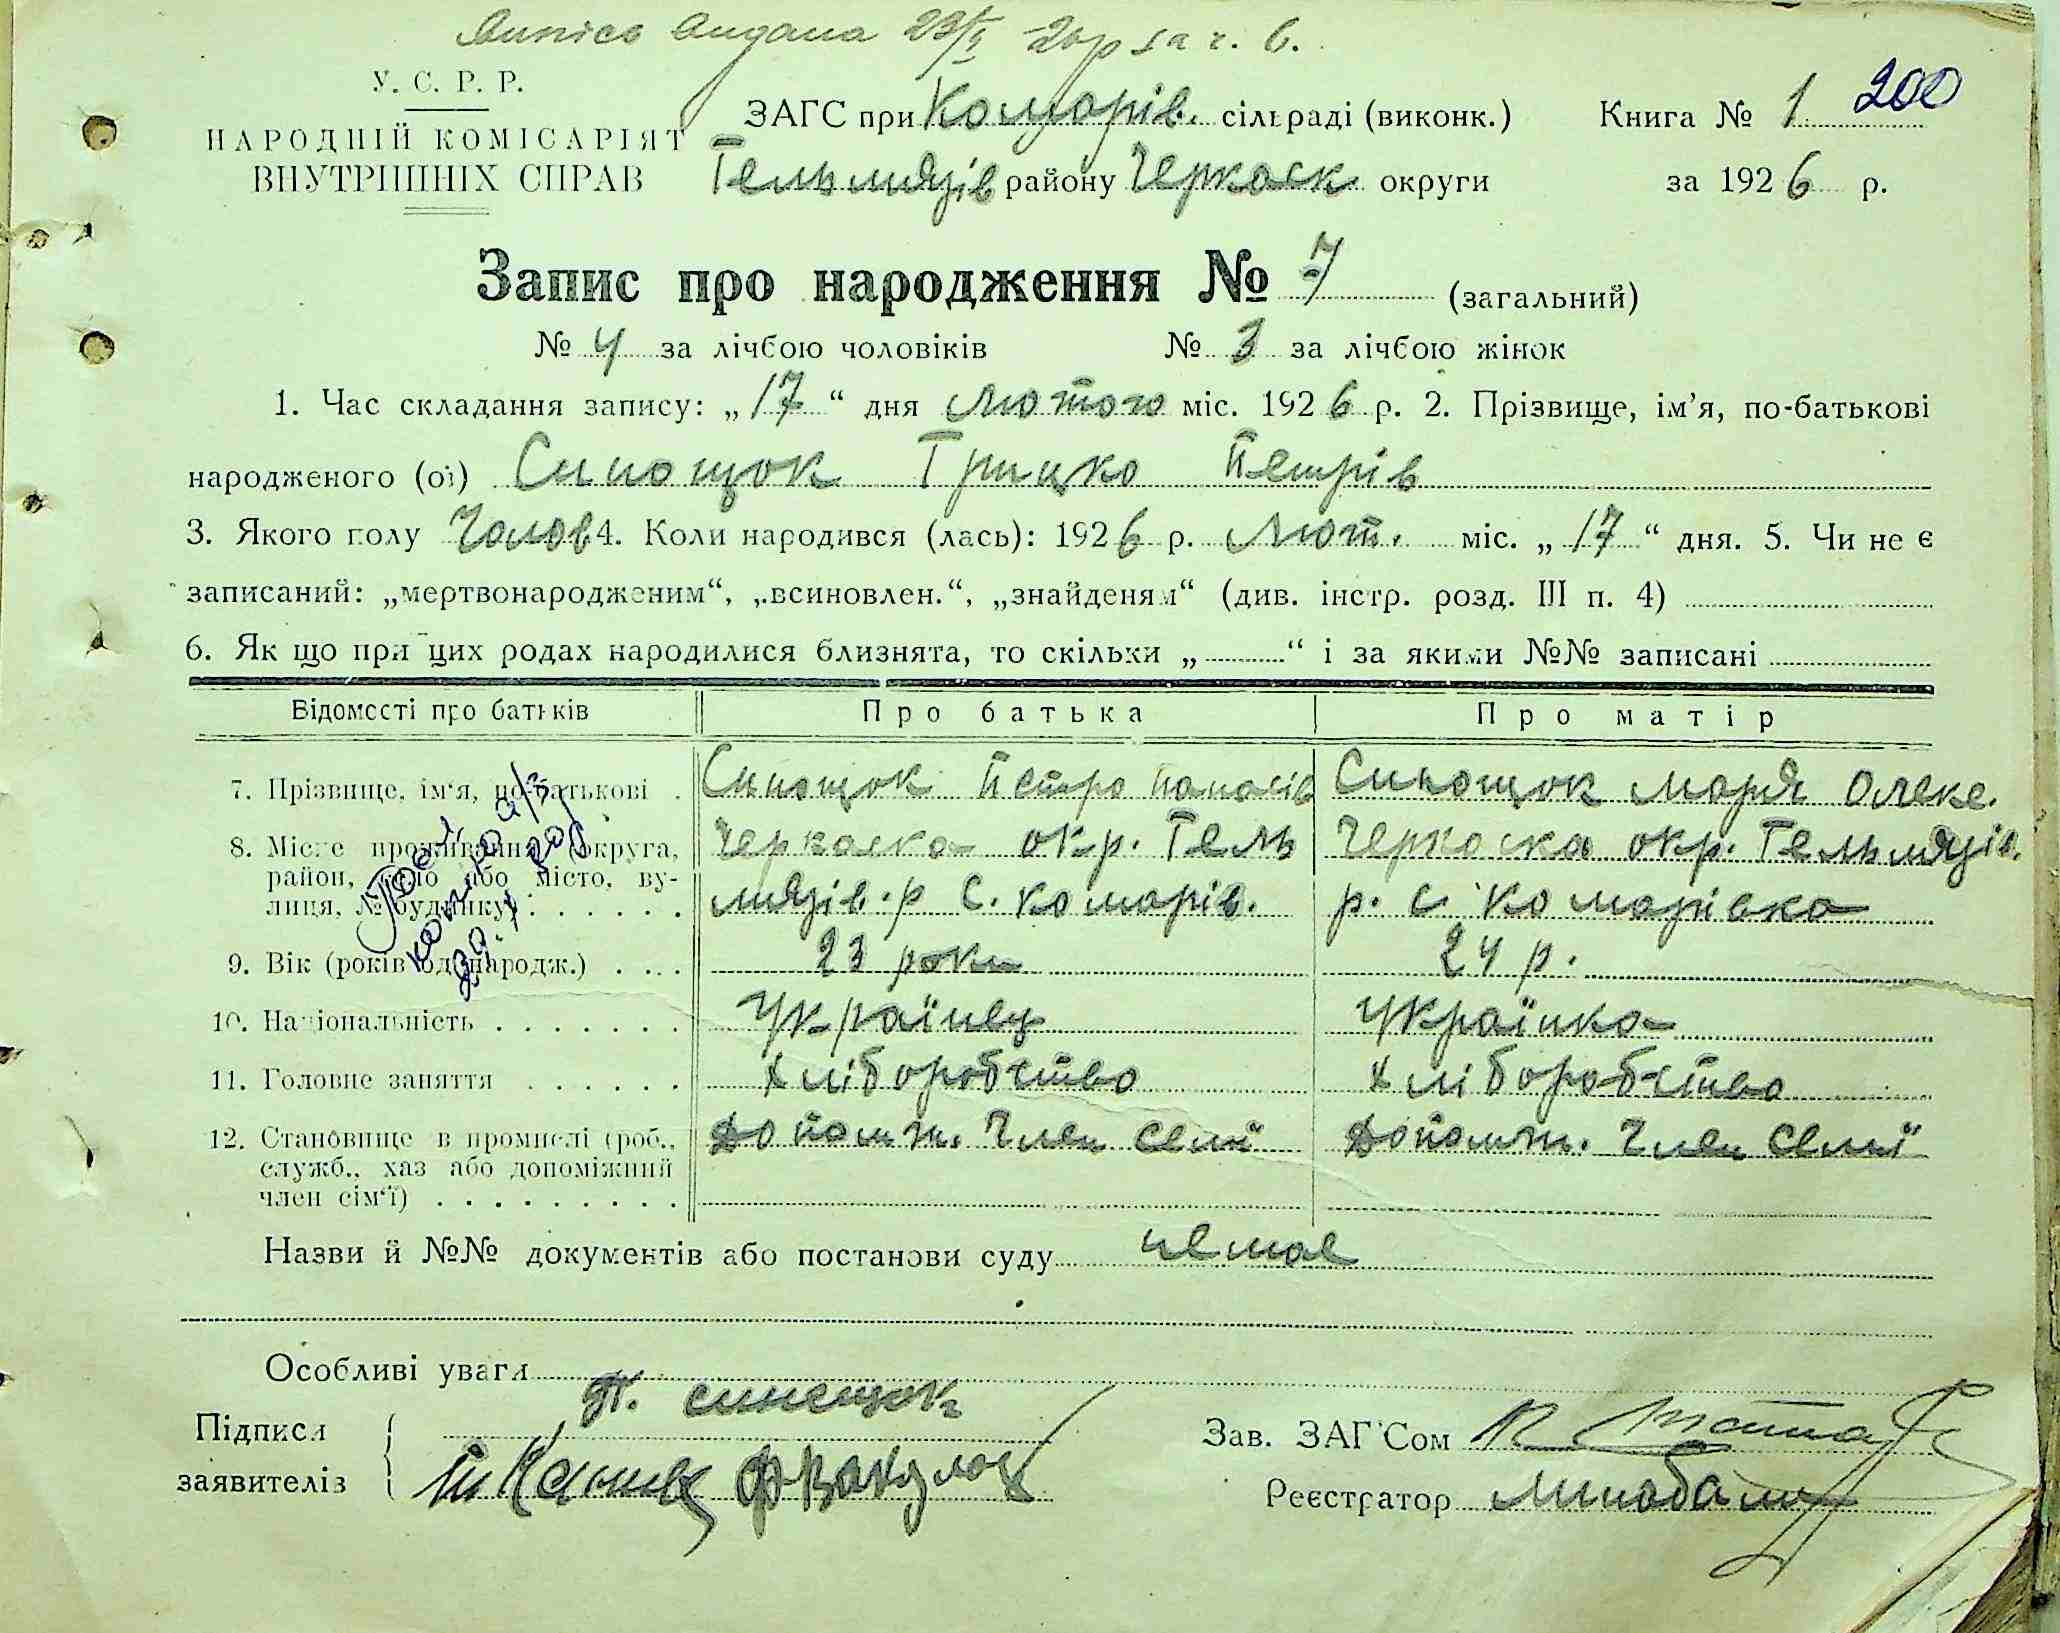 Випись видана 23/I 26р за ч. 6.
У. С. Р. Р.
НАРОДНІЙ КОМІСАРІЯТ
ВНУТРІШНІХ СПРАВ
ЗАГС при Комарів. сільраді (виконк.)
Гельмязів району Черкаск округи
Книга № 1 200
за 1926 р.
Запис про народження № 7 (загальний)
№ 4 за лічбою чоловіків № 3 за лічбою жінок
1. Час складання запису: „17“ дня лютого міс. 1926 р. 2. Прізвище, ім’я, по-батькові
народженого (ої) Синощок Грицко Петрів
3. Якого полу Чолов 4. Коли народився (лась): 1926 р. лют. міс. „17“ дня. 5. Чи не є
записаний: „мертвонародженим“, „всиновлен.“, „знайденям“ (див. інстр. розд. III п. 4)
6. Як що при цих родах народилися близнята, то скільки „ “ і за якими №№ записані
Відомості про батьків Про батька Про матір
7. Прізвище, ім’я, по-батькові . Синощок Петро Панасів Синощок Марія Олекс.
8. Місце проживання (округа, Черкаска окр. Гель Черкаска окр. Гельмязів.
район, село або місто, ву-
лиця, № будинку) . . . . . . мязів. р с. Комарів. р. с Комарівка
9. Вік (років од народж.) . . . . 23 роки 24 р.
10. Національність . . . . . . . Українец Українка
11. Головне заняття . . . . . . Хліборобство Хліборобство
12. Становище в промислі (роб., Допомж. Член семї Допомж. Член семї
служб., хаз або допоміжний
член сім’ї) . . . . . . . . .
Назви й №№ документів або постанови суду немає
Особливі уваги
Підписи П. синещок
заявителів
Зав. ЗАГСом
Реєстратор